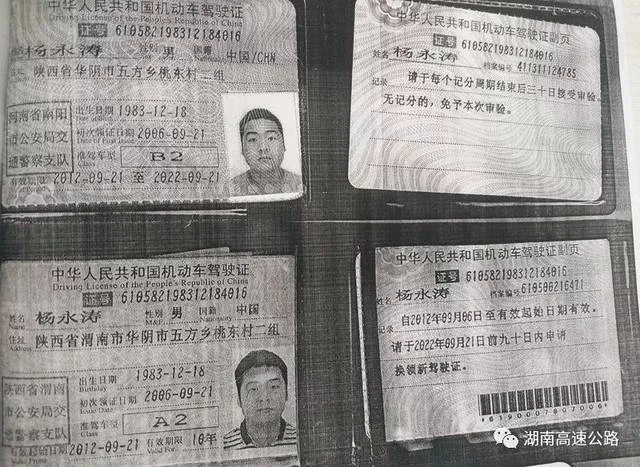 中华人民共和国机动车驾驶证
Driving License of the People's Republic of China
证号 610582198312184016
姓名 杨永涛 性别 男 国籍 中国/CHN
陕西省华阴市五方乡桃东村二组
河南省南阳
市公安局交
通警察支队
出生日期 1983-12-18
初次领证日期 2006-09-21
准驾车型 B2
有效期限 2012-09-21 至 2022-09-21
中华人民共和国机动车驾驶证副页
证号 610582198312184016
姓名 杨永涛
档案编号 411311124785
记录 请于每个记分周期结束后三十日接受审验。
无记分的，免予本次审验。
中华人民共和国机动车驾驶证
Driving License of the People's Republic of China
证号 610582198312184016
姓名 Name 杨永涛 性别 男 国籍 中国
住址 Address 陕西省渭南市华阴市五方乡桃东村二组
陕西省渭南
市公安局交
通警察支队
出生日期 1983-12-18
初次领证日期 2006-09-21
Issue Date
准驾车型 A2
Class
有效起始日期 2012-09-21 有效期限 10年
Valid From Valid For
中华人民共和国机动车驾驶证副页
证号 610582198312184016
姓名 杨永涛
档案编号 610506216471
记录 自2012年09月06日至有效起始日期有效。
请于2022年09月21日前九十日内申请
换领新驾驶证。
湖南高速公路